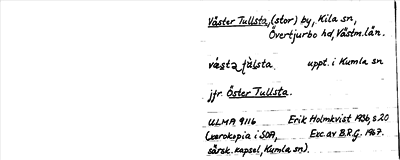 Väster Tullsta, (stor) by, Kila sn,
Övertjurbo hd, Västm. län.
uppt. i Kumla sn
jfr. Öster Tullsta.
ULMA 9116 Erik Holmkvist 1936, s 20
(xerokopia i SOA, Exc. av B.R.G. 1967.
särsk. kapsel, Kumla sn).